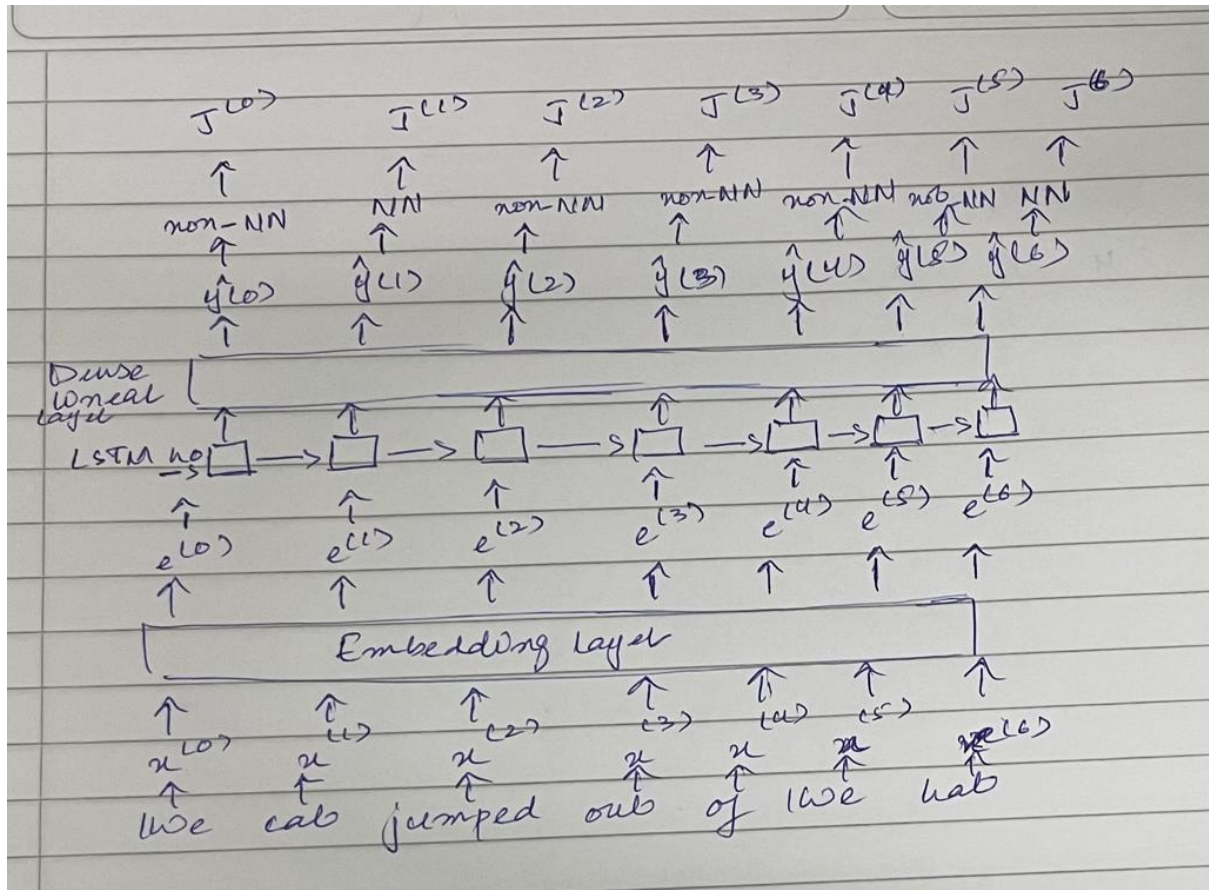 J⁽⁰⁾ J⁽¹⁾ J⁽²⁾ J⁽³⁾ J⁽⁴⁾ J⁽⁵⁾ J⁽⁶⁾
↑ ↑ ↑ ↑ ↑ ↑ ↑
non-NN NN non-NN non-NN non-NN not-NN NN
↑ ↑ ↑ ↑ ↑ ↑ ↑
ŷ(0) ŷ(1) ŷ(2) ŷ(3) ŷ(4) ŷ(5) ŷ(6)
↑ ↑ ↑ ↑ ↑ ↑ ↑
Dense
lineal
layer
↑ ↑ ↑ ↑ ↑ ↑ ↑
LSTM h0 → → → → → → →
↑ ↑ ↑ ↑ ↑ ↑ ↑
e⁽⁰⁾ e⁽¹⁾ e⁽²⁾ e⁽³⁾ e⁽⁴⁾ e⁽⁵⁾ e⁽⁶⁾
↑ ↑ ↑ ↑ ↑ ↑ ↑
Embedding layer
↑ ↑ ↑ ↑ ↑ ↑ ↑
x⁽⁰⁾ x⁽¹⁾ x⁽²⁾ x⁽³⁾ x⁽⁴⁾ x⁽⁵⁾ x⁽⁶⁾
↑ ↑ ↑ ↑ ↑ ↑ ↑
the cat jumped out of the hat